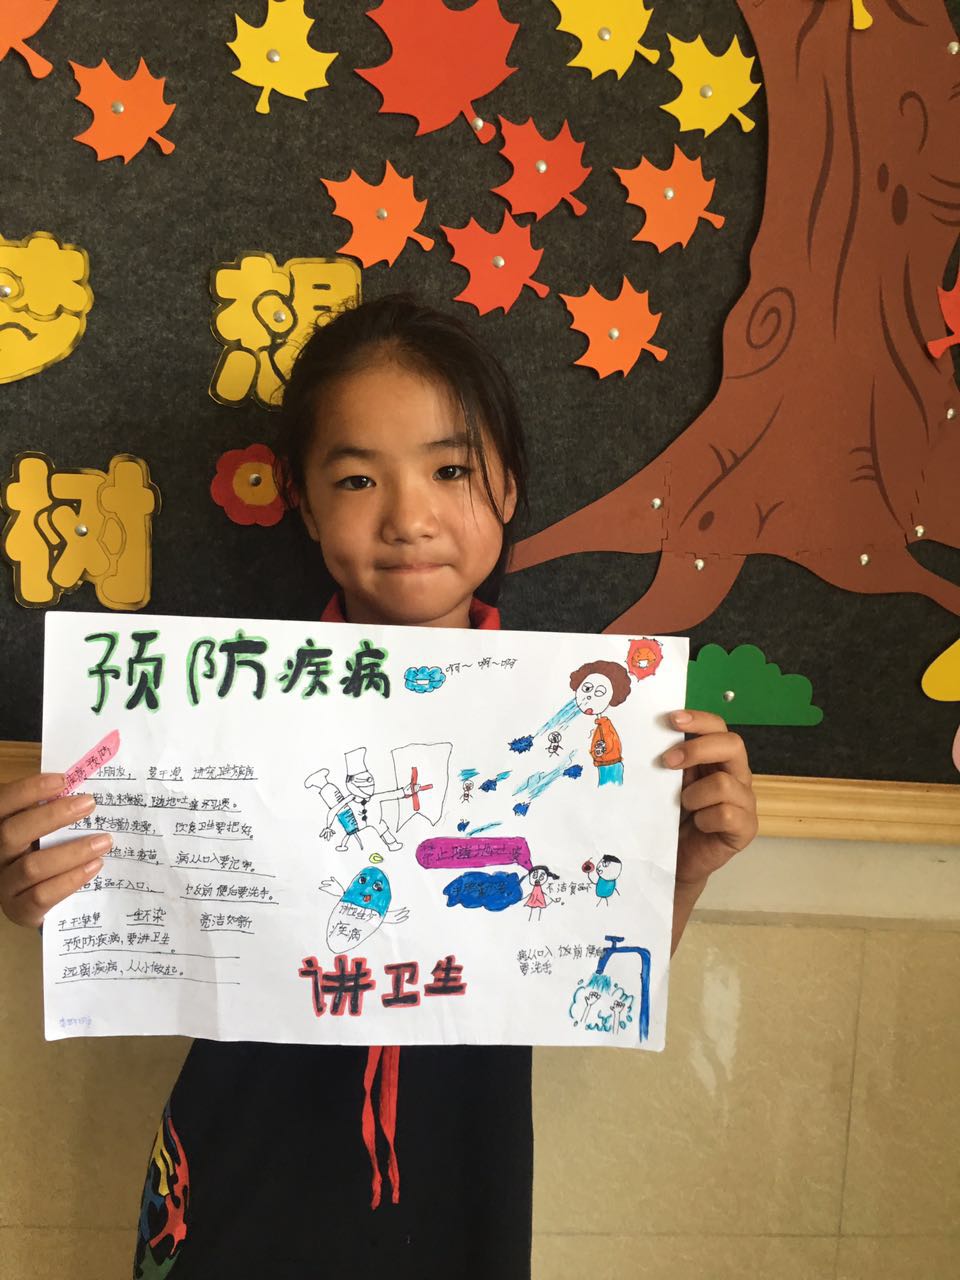 梦想
树
预防疾病
啊~啊~啊
小朋友， 要干净 讲究卫生防疾病
勤洗澡 随地吐痰坏习惯。
衣着整洁勤洗澡， 饮食卫生要把好。
注疫苗， 病从口入要记牢。
食品不入口、 饭前便后要洗手。
干干净净 一尘不染 亮洁如新
预防疾病，要讲卫生。
远离疾病，从小做起。
讲卫生少
疾病
不洁食品不
入口。
病从口入 饭前便后
要洗手
讲卫生